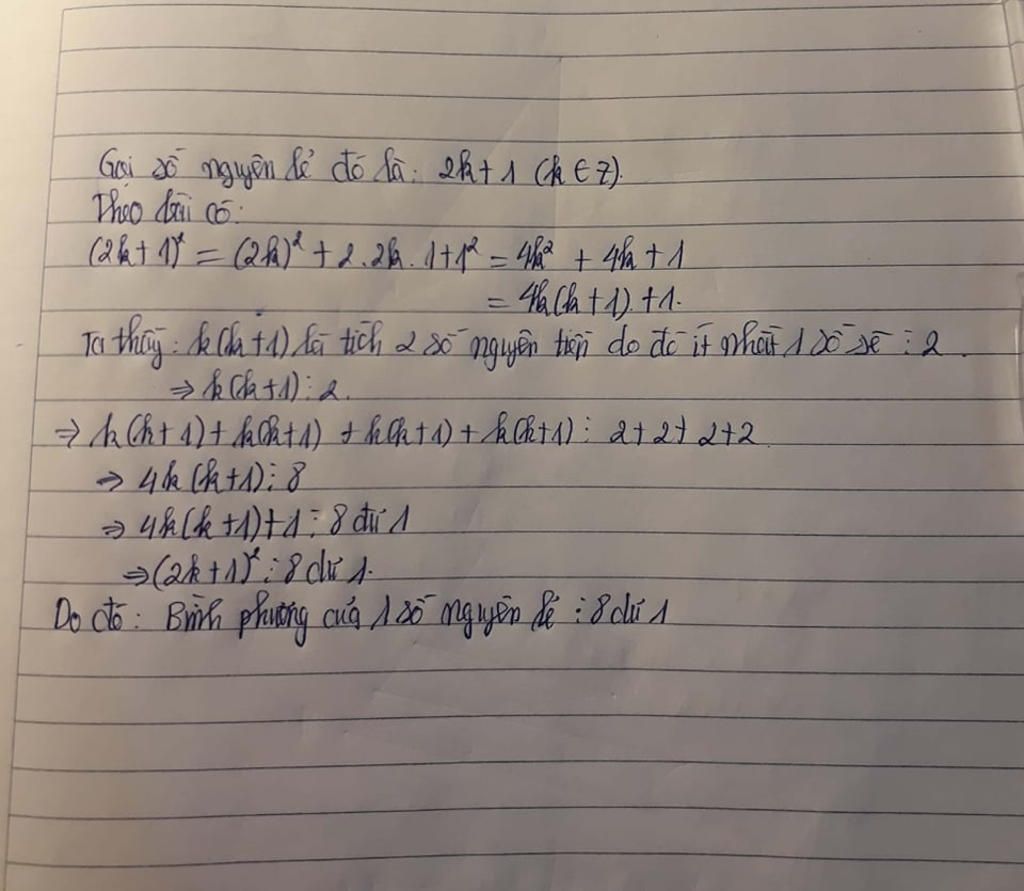 Gọi số nguyên lẻ đó là: 2k+1 (k ∈ Z).
Theo bài có:
(2k+1)² = (2k)² + 2.2k.1+1² = 4k² + 4k + 1
= 4k(k+1)+1.
Ta thấy: k(k+1) là tích 2 số nguyên tiến do đó ít nhất 1 số sẽ ⋮ 2.
⇒ k(k+1) ⋮ 2.
⇒ k(k+1) + k(k+1) + k(k+1) + k(k+1) ⋮ 2+2+2+2
⇒ 4k(k+1) ⋮ 8
⇒ 4k(k+1)+1 ⋮ 8 dư 1
⇒ (2k+1)² ⋮ 8 dư 1.
Do đó: Bình phương của 1 số nguyên lẻ ⋮ 8 dư 1